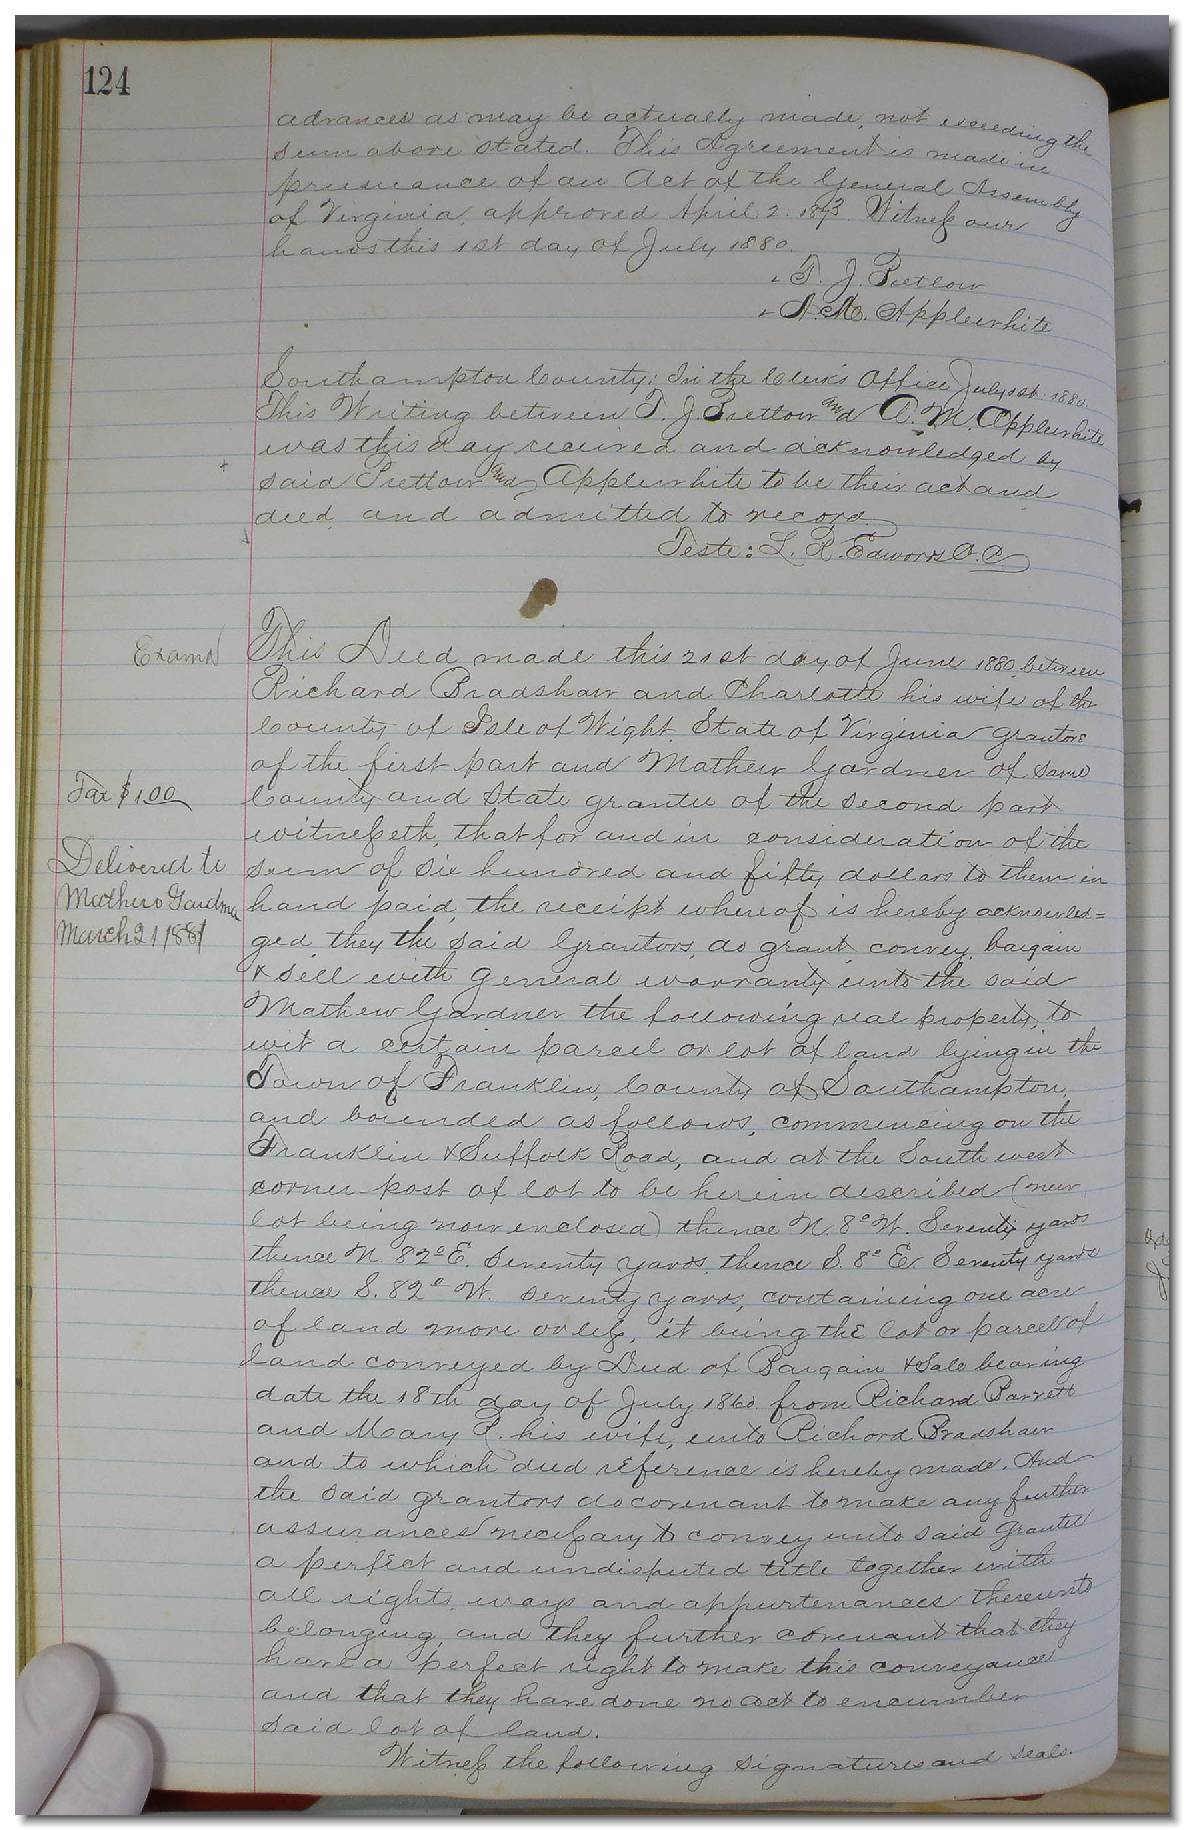 124
advances as may be actually made, not exceeding the
sum above stated. This Agreement is made in
prusuance of an Act of the General Assembly
of Virginia, approved April 2. 1873. Witness our
hands this 1st day of July 1880.
T. J. Pretlow
A. M. Applewhite
Southampton County; In the Clerk's Office July 1st 1880.
This Writing between T. J. Pretlow and A. M. Applewhite
was this day received and acknowledged by
said Pretlow and Applewhite to be their act and
deed, and admitted to record.
Teste: L. R. Edwards C. C.
Examd
This Deed made this 21st day of June 1880, between
Richard Bradshaw and Charlotte his wife of the
County of Isle of Wight State of Virginia grantors
of the first part and Mathew Gardner of same
Tax $1.00
County and State grantee of the second part
witnesseth, that for and in consideration of the
Delivered to
Mathew Gardner
March 21 1881
sum of six hundred and fifty dollars to them in
hand paid, the receipt whereof is hereby acknowled=
ged, they the said Grantors, do grant, convey, bargain
& sell with general warranty unto the said
Mathew Gardner the following real property, to
wit a certain parcel or lot of land lying in the
Town of Franklin, County of Southampton,
and bounded as follows, commencing on the
Franklin & Suffolk Road, and at the South west
corner post of lot to be herein described (
lot being now enclosed) thence N. 8° W. Seventy yards
thence N. 82° E. Seventy yards, thence S. 8° E. Seventy yards
thence S. 82° W. seventy yards, containing one acre
of land more or less, it being the lot or parcel of
land conveyed by Deed of Bargain & Sale bearing
date the 18th day of July 1860 from Richard Barrett
and Mary his wife, unto Richard Bradshaw
and to which deed reference is hereby made. And
the said grantors do covenant to make any further
assurances necessary to convey unto said grantee
a perfect and undisputed title together with
all rights ways and appurtenances thereunto
belonging, and they further covenant that they
have a perfect right to make this conveyance
and that they have done no act to encumber
said lot of land.
Witness the following signatures and seals.